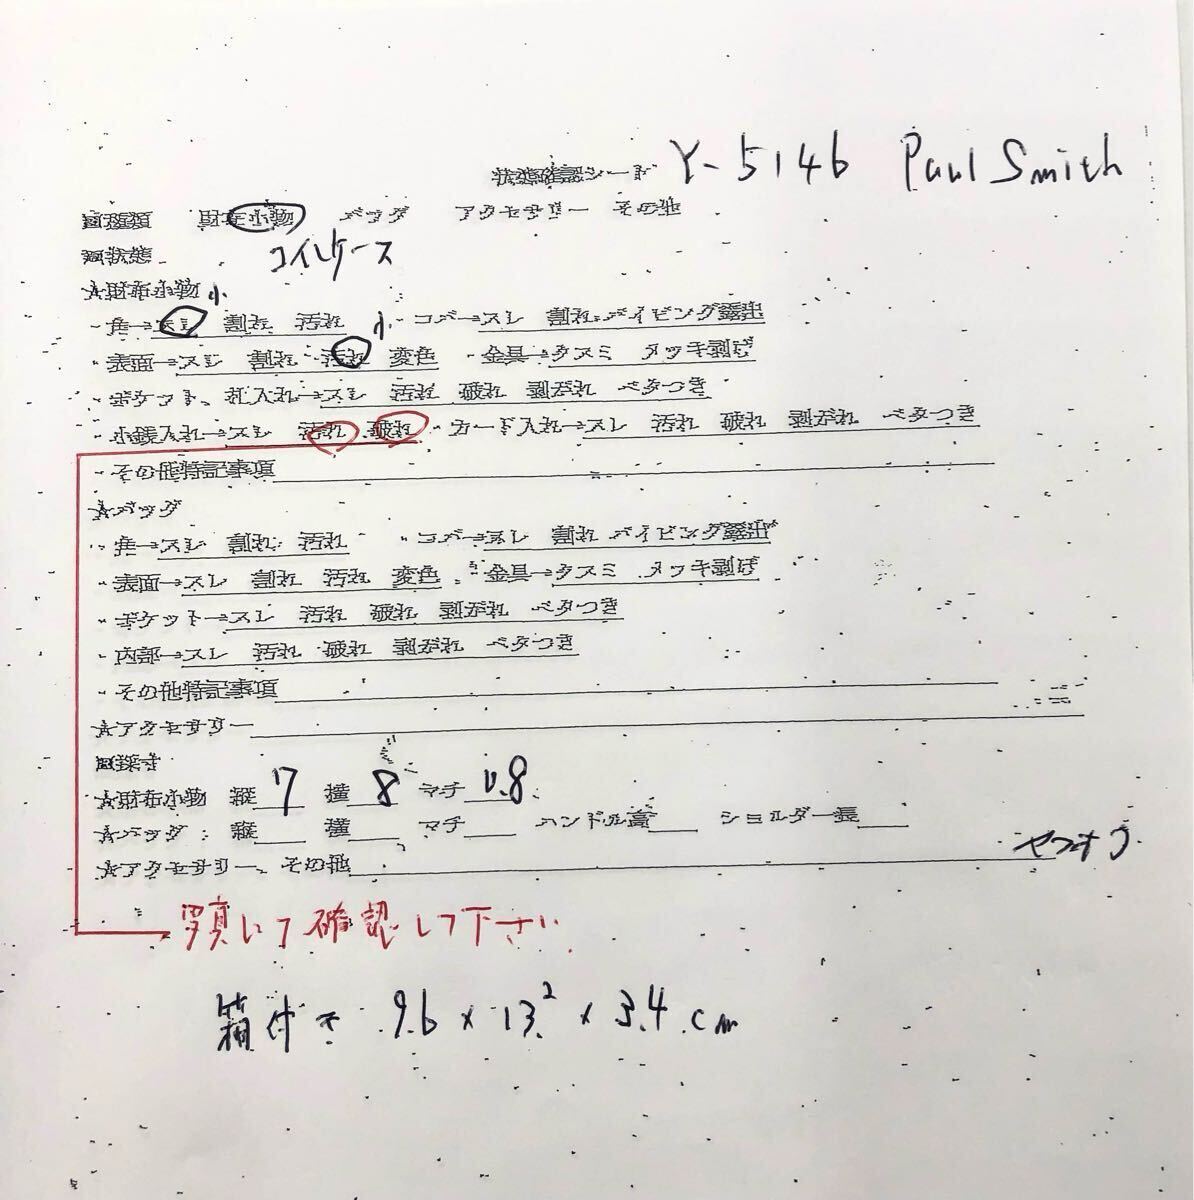 状態確認シート Y-5146 Paul Smith
回種類 財布小物 バッグ アクセサリー その他
回状態 コインケース
★財布小物 小
・角→スレ 割れ 汚れ 小 ・コバ→スレ 割れ パイピング露出
・表面→スレ 割れ 汚れ 変色 ・金具→クスミ メッキ剥げ
・ポケット、札入れ→スレ 汚れ 破れ 剥がれ ベタつき
・小銭入れ→スレ 汚れ 破れ ・カード入れ→スレ 汚れ 破れ 剥がれ ベタつき
・その他特記事項
★バッグ
・角→スレ 割れ 汚れ ・コバ→スレ 割れ パイピング露出
・表面→スレ 割れ 汚れ 変色 ・金具→クスミ メッキ剥げ
・ポケット→スレ 汚れ 破れ 剥がれ ベタつき
・内部→スレ 汚れ 破れ 剥がれ ベタつき
・その他特記事項
★アクセサリー
回採寸
★財布小物 縦 7 横 8 マチ 0.8
★バッグ 縦 横 マチ ハンドル高 ショルダー長
★アクセサリー、その他 ヤフオク
写真にて確認して下さい
箱付き 9.6 x 13.2 x 3.4 cm